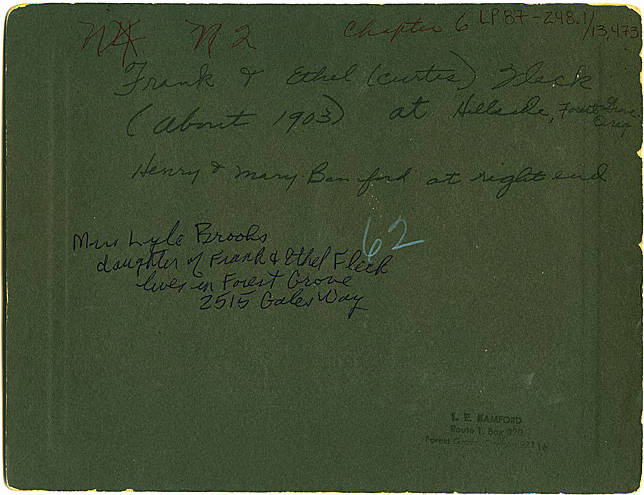 N2 Chapter 6 LP 87-248.1/
13,473
Frank & Ethel (Curtis) Fleck
(about 1903) at Hillside, Forest Grove
Oreg
Henry & Mary Bamford at right end
62
Mrs Lyle Brooks
daughter of Frank & Ethel Fleck
lives in Forest Grove
2515 Gales Way
E. BAMFORD
Route 1, Box
Forest